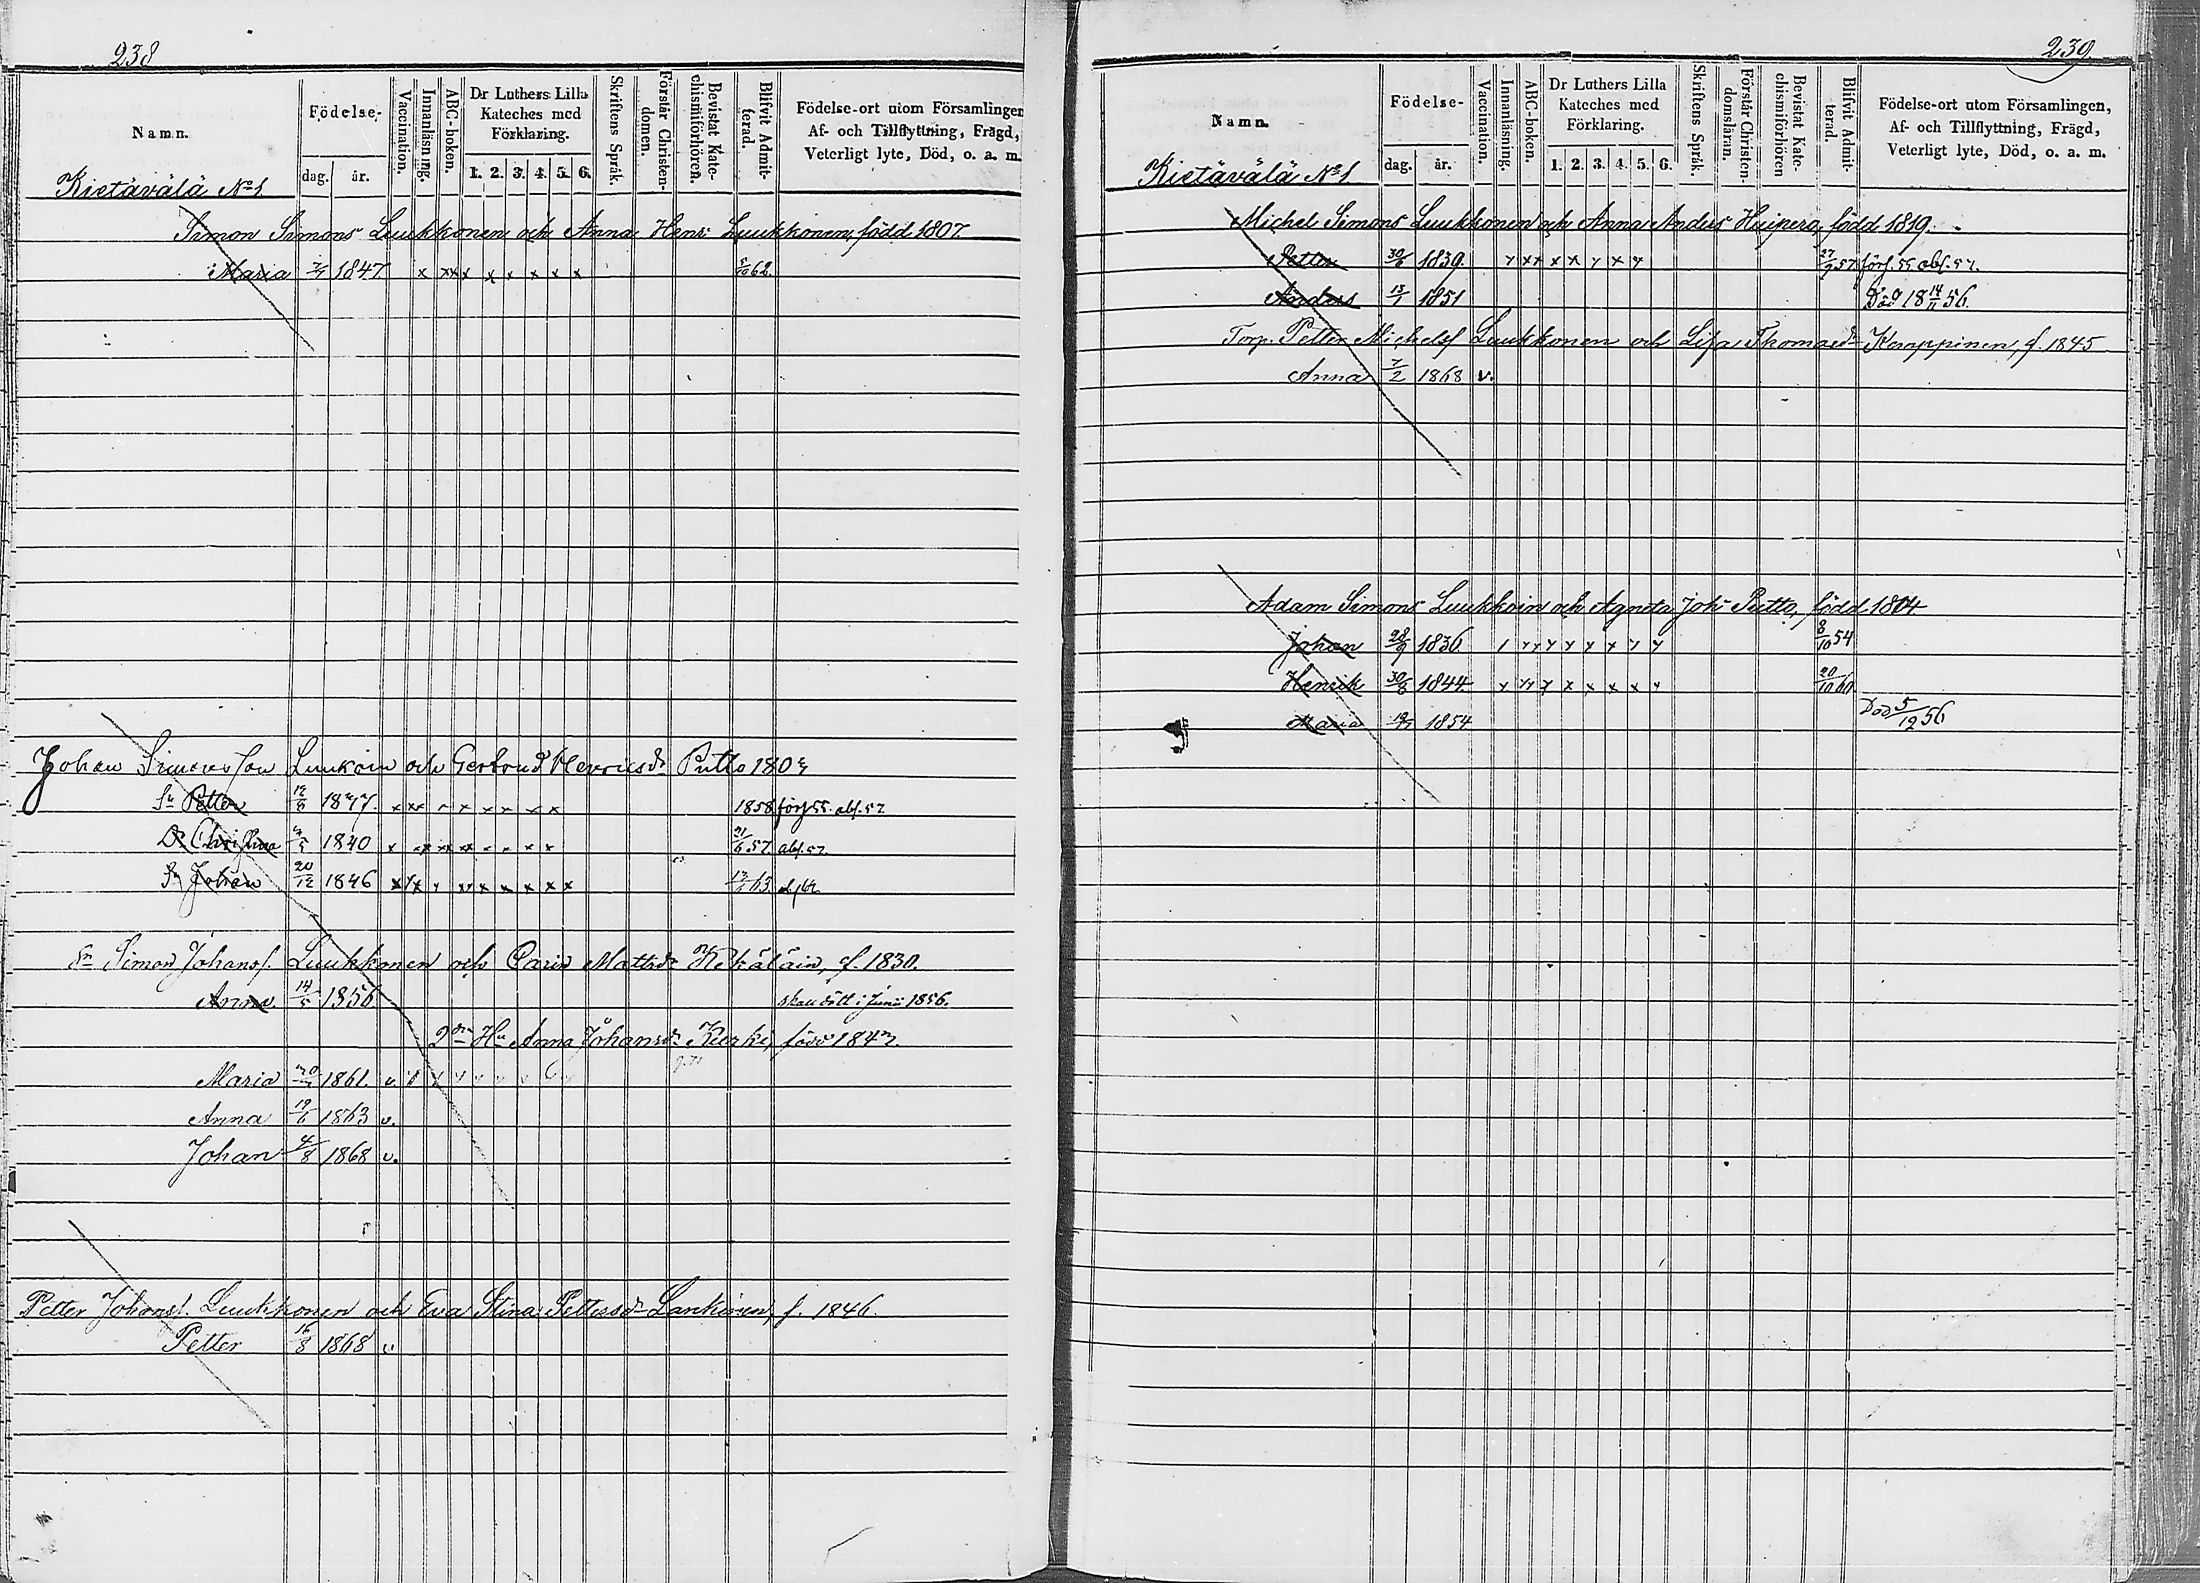 238
Namn.
Födelse-
dag. år.
Vaccination.
Innanläsning.
ABC-boken.
Dr Luthers Lilla
Kateches med
Förklaring.
1. 2. 3. 4. 5. 6.
Skriftens Språk.
Förstår Christen-
domen.
Bevistat Kate-
chismiförhören.
Blifvit Admit-
terad.
Födelse-ort utom Församlingen
Af- och Tillflyttning, Frägd,
Veterligt lyte, Död, o. a. m.
Kietävälä No 1
Simon Simons Luukkonen och Anna Henr: Luukkonen, född 1807.
Maria 1847. x xx x x x x x x 62.
Johan Simonsson Luukoin och Gertrud Henricsdr Putto
Sn Petter 12/6 1858 förf 55. abs. 57
Dr Christina 1840 21/6 57 abs. 57.
Sn Johan 20/12 1846 63
Sn Simon Johanss. Luukkonen och Carin Mattsdr Kekäläin, f. 1830.
Anna 14/5 1856 skall dött i Junii 1856.
2dra Hu Anna Johansdr född
Maria 1861. v
Anna 19/6 1863 v.
Johan 4/8 1868 v.
Petter Johanss. Luukkonen och Eva Stina Pettersdr Lankinen, f. 1846.
Petter 16/8 1868 v
239.
Namn.
Födelse-
dag. år.
Vaccination.
Innanläsning.
ABC-boken.
Dr Luthers Lilla
Kateches med
Förklaring.
1. 2. 3. 4. 5. 6.
Skriftens Språk.
Förstår Christen-
domsläran.
Bevistat Kate-
chismiförhören
Blifvit Admit-
terad.
Födelse-ort utom Församlingen,
Af- och Tillflyttning, Frägd,
Veterligt lyte, Död, o. a. m.
Kietävälä No 1
Michel Simons Luukkonen och Anna Anders Huipero, född 1819.
Petter 30/6 1839. 27/9 57 förf. 55. abs. 57.
Anders 13/1 1851 Död 18 14/11 56.
Torp. Petter Michelss Luukkonen och Lisa Thomasdr Kamppinen, f. 1845
Anna 7/2 1868 v.
Adam Simons Luukkoin och Agneta Joh: Putto, född 1804
Johan 28/9 1836 8/10 54
Henrik 30/8 1844 20/10 60
Maria 1854 Död 5/12 56